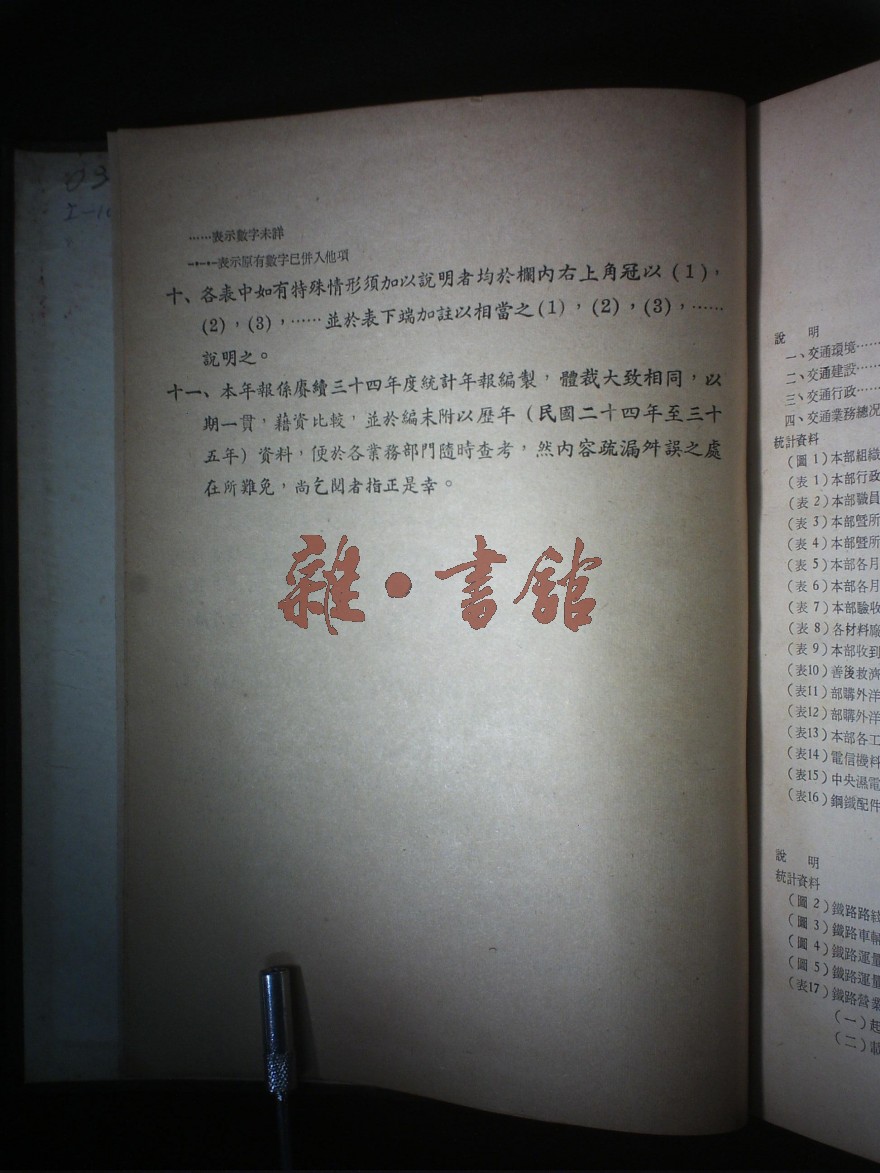 ……表示數字未詳
—·—·—表示原有數字已併入他項
十、各表中如有特殊情形須加以說明者均於欄內右上角冠以(1)，
(2)，(3)，……並於表下端加註以相當之(1)，(2)，(3)，……
說明之。
十一、本年報係賡續三十四年度統計年報編製，體裁大致相同，以
期一貫，藉資比較，並於編末附以歷年（民國二十四年至三十
五年）資料，便於各業務部門隨時查考，然內容疏漏舛誤之處
在所難免，尚乞閱者指正是幸。
雜·書館
說　明
一、交通環境……
二、交通建設……
三、交通行政……
四、交通業務總況
統計資料
（圖 1）本部組織
（表 1）本部行政
（表 2）本部職員
（表 3）本部暨所
（表 4）本部暨所
（表 5）本部各月
（表 6）本部各月
（表 7）本部驗收
（表 8）各材料廠
（表 9）本部收到
（表10）善後救濟
（表11）部購外洋
（表12）部購外洋
（表13）本部各工
（表14）電信機料
（表15）中央濕電
（表16）鋼鐵配件
說　明
統計資料
（圖 2）鐵路路綫
（圖 3）鐵路車輛
（圖 4）鐵路運量
（圖 5）鐵路運量
（表17）鐵路營業
（一）起
（二）載